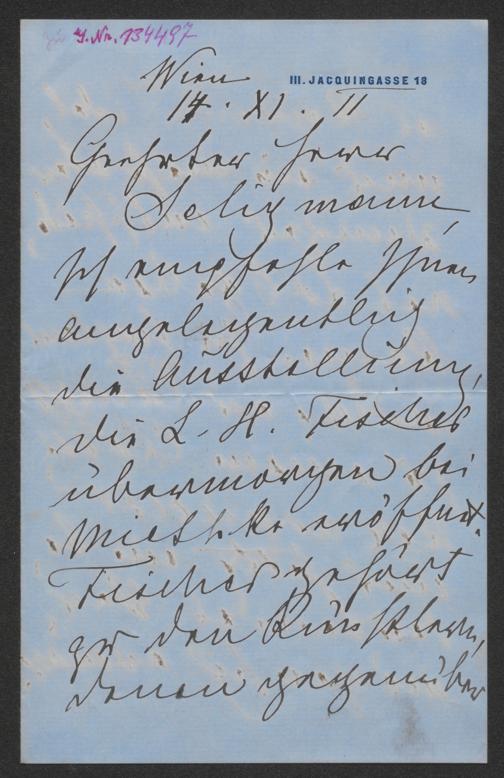 zu J. Nr. 134497
III. JACQUINGASSE 18
Wien
14. XI. 11
Geehrter Herr
Seligmann,
Ich empfehle Ihnen
angelegentlich
die Ausstellung,
die L. H. Fischer
übermorgen bei
Miethke eröffnet.
Fischer gehört
zu den Künstlern,
denen gegenüber